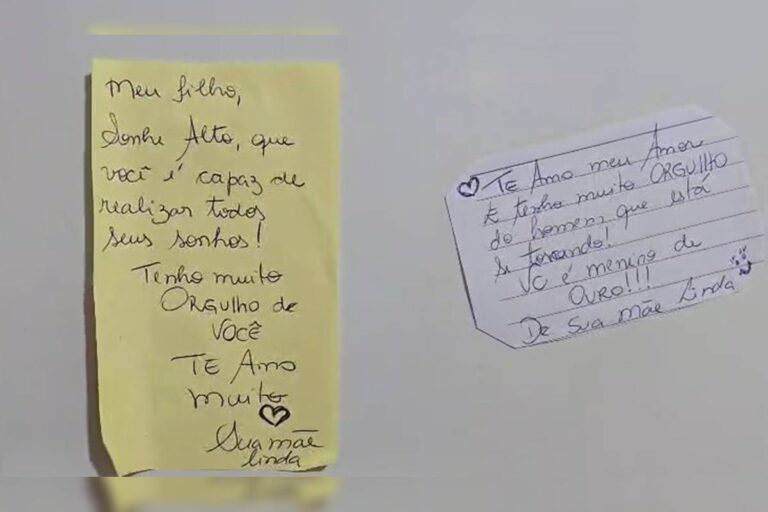 Meu filho,
Sonhe Alto, que
você é capaz de
realizar todos
seus sonhos!
Tenho muito
ORGULHO de
VOCÊ
TE Amo
muito
Sua mãe
linda
TE Amo meu Amor
E tenho muito ORGULHO
do homem que está
se tornando!
VC é menino de
OURO!!!
De Sua mãe Linda